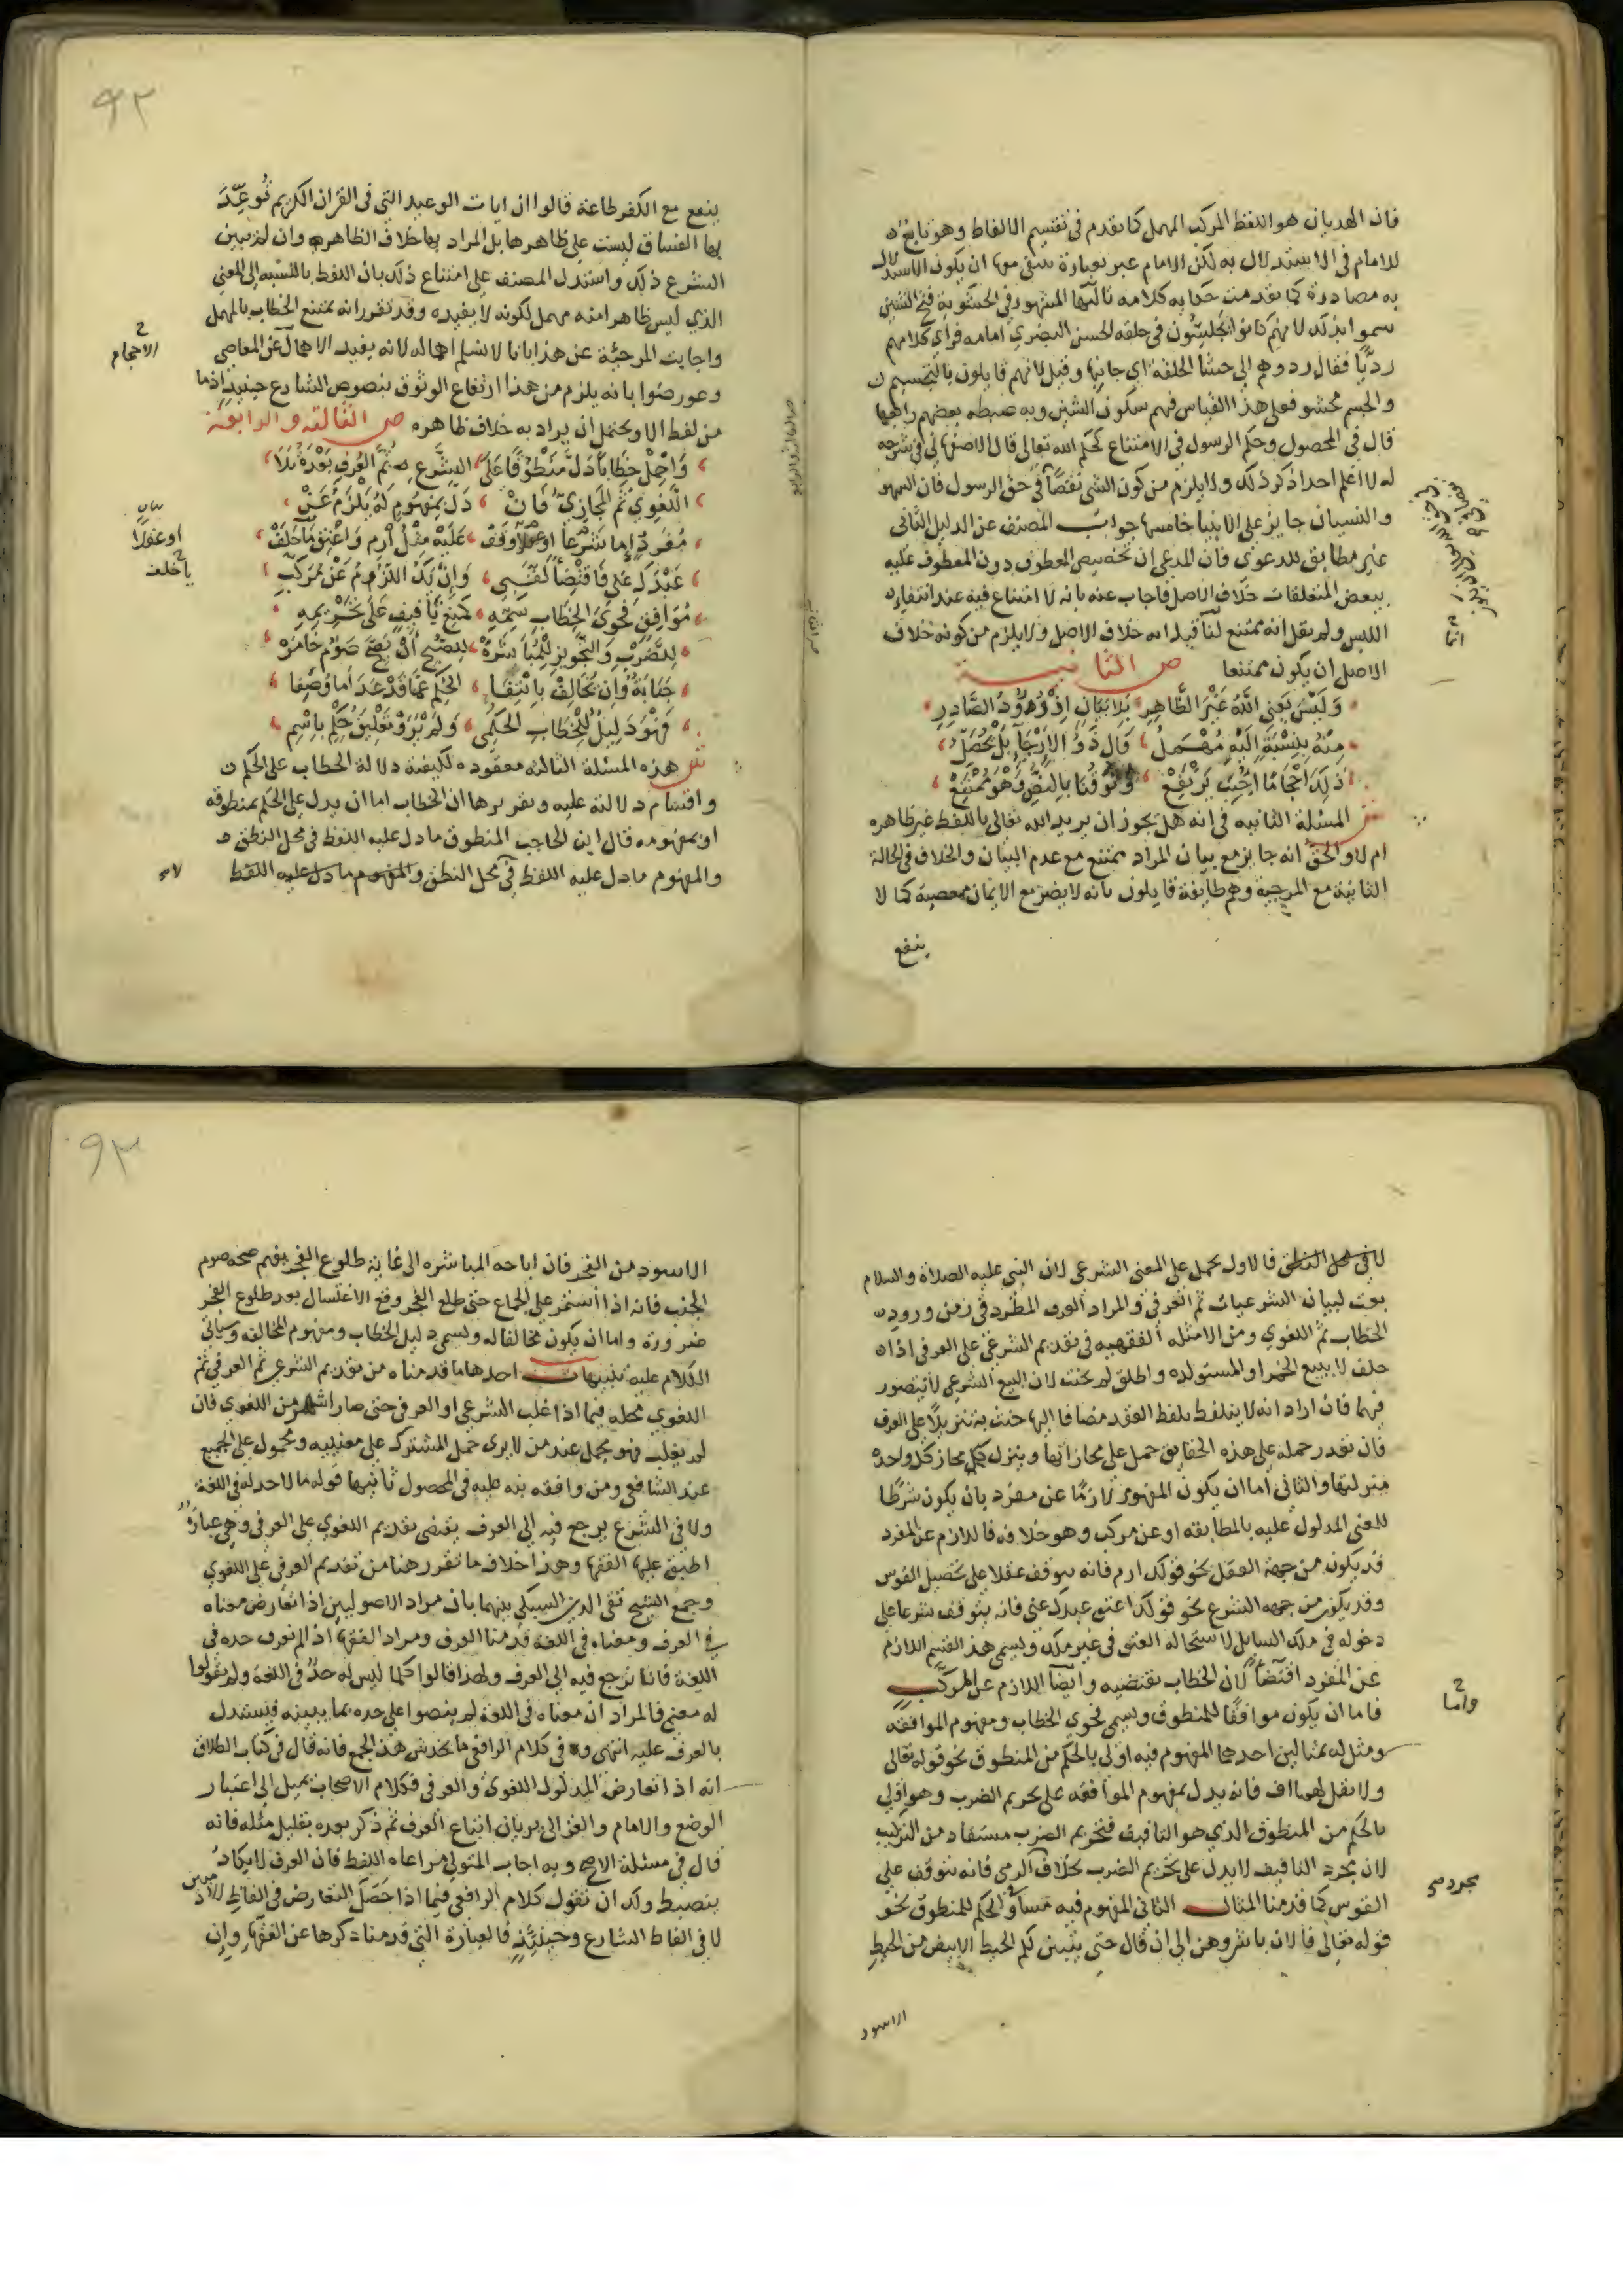 فان الهذيان هو اللفظ المركب المهمل كما تقدم في تقسيم الالفاظ وهو تابع
للامام في الاستدلال به لكن الامام عبر بعبارة ان يكون الاستدلال
به مصادرة كما تقدمت حكاية كلامه ثالثها المشهور في الحشوية فتح الشين
سموا بذلك لانهم كانوا يجلسون في حلقة الحسن البصري امامه فراي كلامهم
رديا فقال ردوهم الي حشا الحلقة اي جانبها وقيل لانهم قايلون بالتجسيم
والجسم محشو فعلي هذا القياس فيهم سكون الشين وبه ضبطه بعضهم رابعها
قال في المحصول وحكم الرسول في الامتناع كحكم الله تعالى قال الاصفهاني في شرحه
له لا اعلم احدا ذكر ذلك ولا يلزم من كون الشي نقصا في حق الرسول فان السهو
والنسيان جايز علي الانبيا خامسها جواب المصنف عن الدليل الثاني
غير مطابق للدعوى فان المدعي ان تخصيص المعطوف دون المعطوف عليه
ببعض المتعلقات خلاف الاصل فاجاب عنه بانه لا امتناع فيه عند انتفاء
اللبس ولم يقل انه ممتنع لنا قيل انه خلاف الاصل ولا يلزم من كونه خلاف
انما
الاصل ان يكون ممتنعا ص الثانية
وَلَيْسَ يَعْنِي اللّٰهُ غَيْرَ الظَّاهِرِ بَلَا بَيَانٍ اِذْ وُرُوْدُ الصَّادِرِ
مِنْهُ بِنِسْبَةِ اِلَيْهِ مُهْمَلُ قَالَ ذَوُ الْاِرْجَا بَلْ يُحَصَّلُ
ذَلِكَ اِحْجَامًا اُجِيْبَ يَرْتَفِعْ وُثُوْقُنَا بِالنَّصِّ وَهْوَ مُمْتَنِعْ
ش المسئلة الثانية في انه هل يجوز ان يريد الله تعالى باللفظ غير ظاهره
ام لا والحق انه جايز مع بيان المراد ممتنع مع عدم البيان والخلاف في الحالة
الثانية مع المرجية وهم طايفة قايلون بانه لا يضر مع الايمان معصية كما لا
ينفع
٩٢
ينفع مع الكفر طاعة قالوا ان ايات الوعيد التي في القران الكريم تُوُعِّدَ
بها الفساق ليست علي ظاهرها بل المراد بها خلاف الظاهر وان لم يبين
الشرع ذلك واستدل المصنف علي امتناع ذلك بان اللفظ بالنسبة الي المعني
الذي ليس ظاهرا منه مهمل لكونه لا يفيده وقد تقرر انه يمتنع الخطاب بالمهمل
واجابت المرجئة عن هذا بانا لا نسلم اهماله لانه يفيد الاهمال عن المعاصي
الاحجام
وعورضوا بانه يلزم من هذا ارتفاع الوثوق بنصوص الشارع حينيذ اذ ما
من لفظ الا ويحتمل ان يراد به خلاف ظاهره ص الثالثة والرابعة
وَاحْمِلْ خِطَابًا دَلَّ مَنْطُوْقًا عَلَى الشَّرْعِ ثُمَّ الْعُرْفِ بَعْدَهُ تَلَا
اللُّغَوِي ثُمَّ الْمَجَازِيُّ فَاِنْ دَلَّ بِمَفْهُوْمٍ لَهُ يَلْزَمُ عَنْ
مُفْرَدٍ اِما شَرْعًا اَوْ عَقْلًا وَقَفْ عَلَيْهِ مِثْلُ اُرْمِ وَاَعْتِقْ مَا خَلَفْ
بيان
او عقلا
يا خلف
عَبْدَكَ عَنِّي فَاقْتِضَاً لَقِّبِ وَاِنْ يَكُ اللُّزُوْمُ عَنْ مُرَكَّبِ
مُوَافِقٍ فَحْوَى الْخِطَابِ سَمِّهِ كَمَنْعِ تَأفِيْفٍ عَلَى تَحْرِيْمِهِ
لِلضَّرْبِ وَالتَّجْوِيْزِ لِلْمُبَاشَرَهْ لِلصُّبْحِ اَنْ يَصِحَّ صَوْمُ خَامَرَهْ
جَنَابَةٌ وَاِنْ يُخَالِفْ بِانْتِفَا الْحُكْمِ عَمَّا قَدْ عَدَا مَا وُصِفَا
فَهْوَ دَلِيْلٌ لِلْخِطَابِ الحَكَمِي وَلَمْ يَرَوْا تَعْلِيْقَ حُكْمٍ بِاِسْمِ
ش هذه المسئلة الثالثة معقوده لكيفية دلالة الخطاب علي الحكم
واقسام دلالته عليه وتقريرها ان الخطاب اما ان يدل علي الحكم بمنطوقه
او بمفهومه قال ابن الحاجب المنطوق ما دل عليه اللفظ في محل النطق
والمفهوم ما دل عليه اللفظ في محل النطق والمفهوم ما دل عليه اللفظ
لا
لا في محل النطق فالاول يحمل علي المعني الشرعي لان النبي عليه الصلاة والسلام
بعث لبيان الشرعيات ثم العرفي والمراد العرف المطرد في زمن ورود
الخطاب ثم اللغوي ومن الامثله الفقهيه في تقديم الشرعي علي العرفي اذا
حلف لا يبيع الخمر او المستولده واطلق لم يحنث لان البيع الشرعي لا يتصور
فيهما فان اراد انه لا يتلفظ بلفظ العقد مضافا اليها حنث به تنزيلا علي العرف
فان تعذر حمله علي هذه الحقايق حمل علي مجازاتها وينزل كل مجاز كل واحد
منزلتها والثاني اما ان يكون المفهوم لازما عن مفرد بان يكون شرطا
للمعني المدلول عليه بالمطابقه او عن مركب وهو خلافه فاللازم عن المفرد
قد يكون من جهة العقل نحو قولك ارم فانه يتوقف عقلا علي تحصيل القوس
وقد يكون من جهه الشرع نحو قولك اعتق عبدك عني فانه يتوقف شرعا علي
دخوله في ملك السايل لاستحالة العتق في غير ملك ويسمي هذا القسم اللازم
عن المفرد اقتضاً لان الخطاب يقتضيه وايضا اللازم عن المركب
واما
فاما ان يكون موافقا للمنطوق ويسمي فحوي الخطاب ومفهوم الموافقة
ومثل له بمثالين احدهما المفهوم فيه اولي بالحكم من المنطوق نحو قوله تعالى
ولا تقل لهما اف فانه يدل بمفهوم الموافقه علي تحريم الضرب وهو اولي
بالحكم من المنطوق الذي هو التافيف فتحريم الضرب مستفاد من التركيب
لان مجرد التافيف لا يدل علي تحريم الضرب بخلاف الرمي فانه يتوقف علي
مجرد صح
القوس كما قدمنا المثال الثاني المفهوم فيه مساو لحكم للمنطوق نحو
قوله تعالى فالان باشروهن الي ان قال حتي يتبين لكم الخيط الابيض من الخيط
الاسود
٩٣
الاسود من الفجر فان اباحه المباشره الي غاية طلوع الفجر يفهم صحه صوم
الجنب فانه اذا استمر علي الجماع حتي طلع الفجر وقع الاغتسال بعد طلوع الفجر
ضرورة واما ان يكون مخالفا له ويسمي دليل الخطاب ومفهوم المخالفه وسياتي
الكلام عليه تنبيهات احدها ما قدمناه من تقديم الشرعي ثم العرفي ثم
اللغوي محله فيما اذا غلب الشرعي او العرفي حتي صار اشهر من اللغوي فان
لم يغلب فهو مجمل عند من لا يري حمل المشترك علي معنييه ومحمول علي الجميع
عند الشافعي ومن وافقه نبه عليه في المحصول ثانيها قوله ما لا حد له في اللغة
ولا في الشرع يرجع فيه الي العرف يقتضي تقديم اللغوي علي العرفي وهي عبارة
اطبق عليها الفقها وهذا خلاف ما تقرر هنا من تقديم العرفي علي اللغوي
وجمع الشيخ تقي الدين السبكي بينهما بان مراد الاصوليين اذا تعارض معناه
في العرف ومعناه في اللغة قدمنا العرف ومراد الفقها اذا لم نعرف حده في
اللغة فانا نرجع فيه الي العرف ولهذا قالوا كلما ليس له حدٌ في اللغة ولم يقولوا
له معني فالمراد ان معناه في اللغة لم ينصوا علي حده بما يبينه فيستدل
بالعرف عليه انتهي وفي كلام الرافعي ما يخدش هذا الجمع فانه قال في كتاب الطلاق
انه اذا تعارض المدلول اللغوي والعرفي فكلام الاصحاب يميل الي اعتبار
الوضع والامام والغزالي يريان اتباع العرف ثم ذكر بعده بقليل مثله فانه
قال في مسئلة الاصح وبه اجاب المتولي مراعاه اللفظ فان العرف لا يكاد
ينضبط ولك ان تقول كلام الرافعي فيما اذا حَصَلَ التعارض في الفاظ
لا في الفاظ الشارع وحينئذ فالعبارة التي قدمنا ذكرها عن الفقها وان